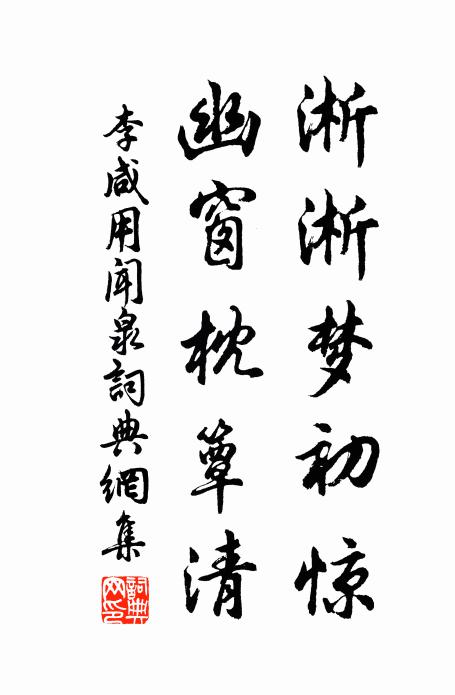 淅淅梦初惊
幽窗枕簟清
李咸用闻泉詞典網集
詞典
网印